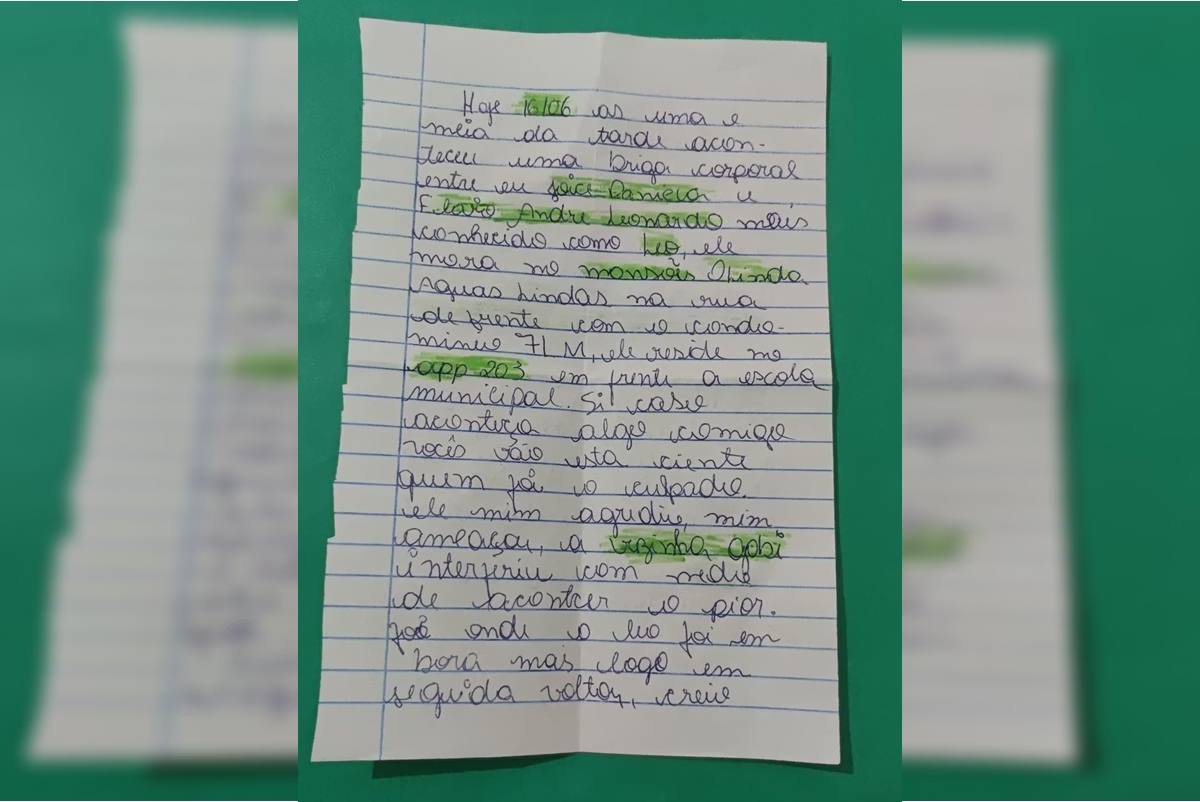 Hoje 16/06 as uma e
meia da tarde acon-
teceu uma briga corporal
entre eu Joice Daniela e
Flavio Andre Leonardo mais
conhecido como Leo, ele
mora no mansões Olinda
Aguas Lindas na rua
de frente com o condo-
minio 7LM, ele reside no
app 203 em frente a escola
municipal. Si caso
aconteça algo comigo
vocês vão esta ciente
quem foi o culpado.
ele mim agrediu, mim
ameaçou, a vizinha gabi
interferiu com medo
de acontcer o pior.
foi onde o leo foi em
bora mas logo em
seguida voltou, creio